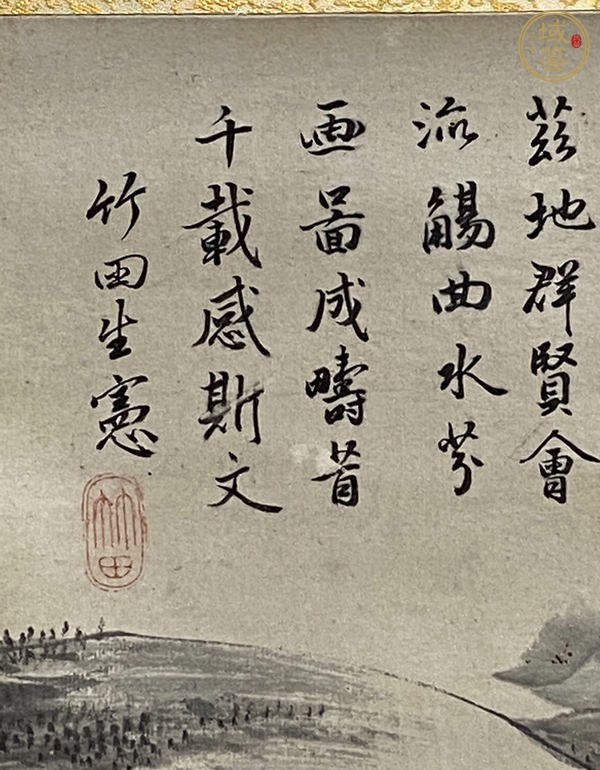 茲地群賢會
流觴曲水芬
画啚成疇昔
千載感斯文
竹田生憲
竹田
域鉴